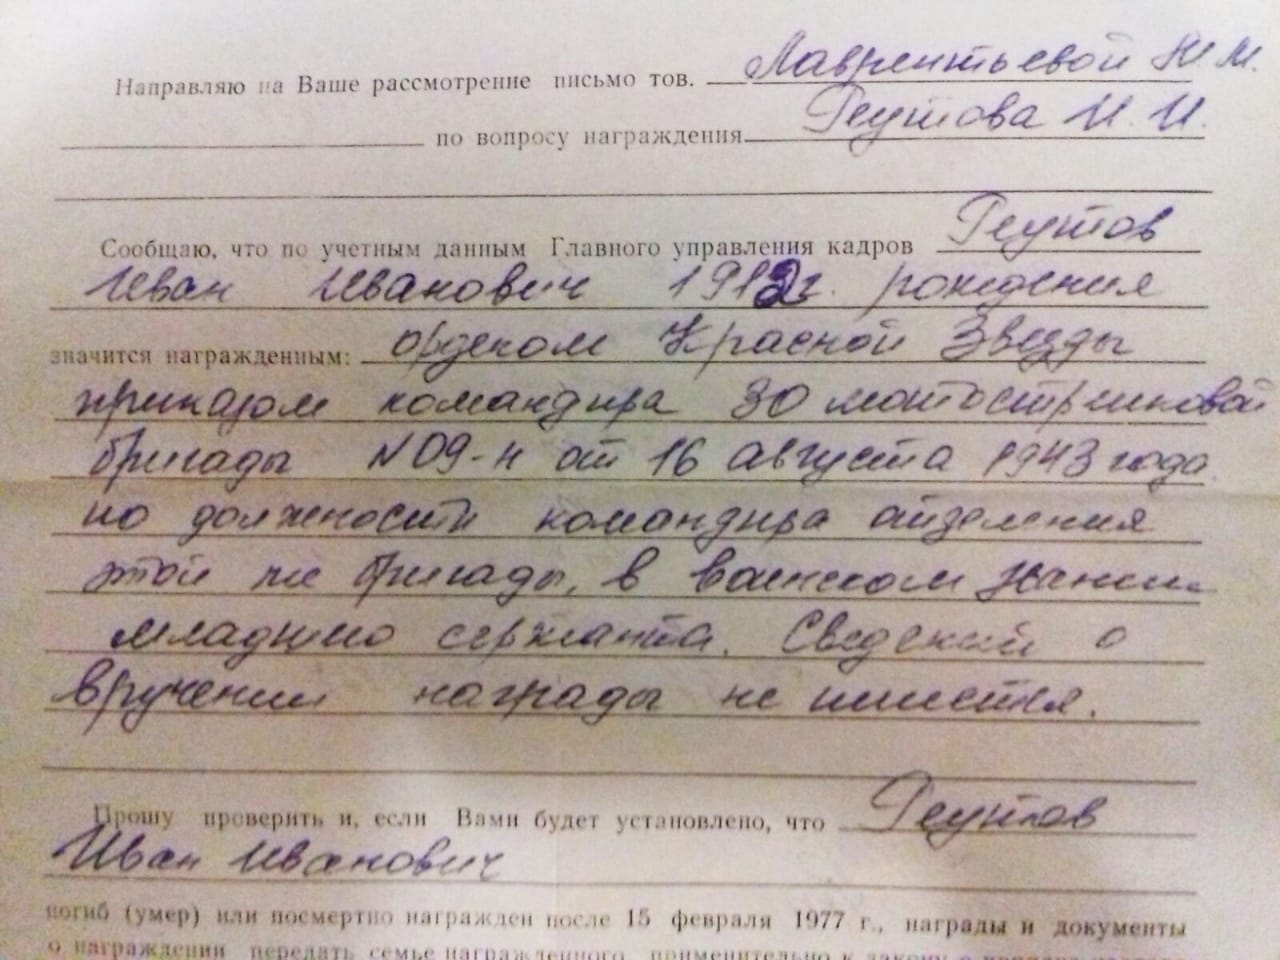 Направляю на Ваше рассмотрение письмо тов. Лаврентьевой Н.М.
по вопросу награждения Реутова И. И.
Сообщаю, что по учетным данным Главного управления кадров Реутов
Иван Иванович 1912г. рождения
значится награжденным: орденом Красной Звезды
приказом командира 30 мотострелковой
бригады N 09-н от 16 августа 1943 года
по должности командира отделения
этой же бригады, в воинском звании
младшего сержанта. Сведений о
вручении награды не имеется.
Прошу проверить и, если Вами будет установлено, что Реутов
Иван Иванович
погиб (умер) или посмертно награжден после 15 февраля 1977 г., награды и документы
о награждении передать семье награжденного, применительно к закону о порядке